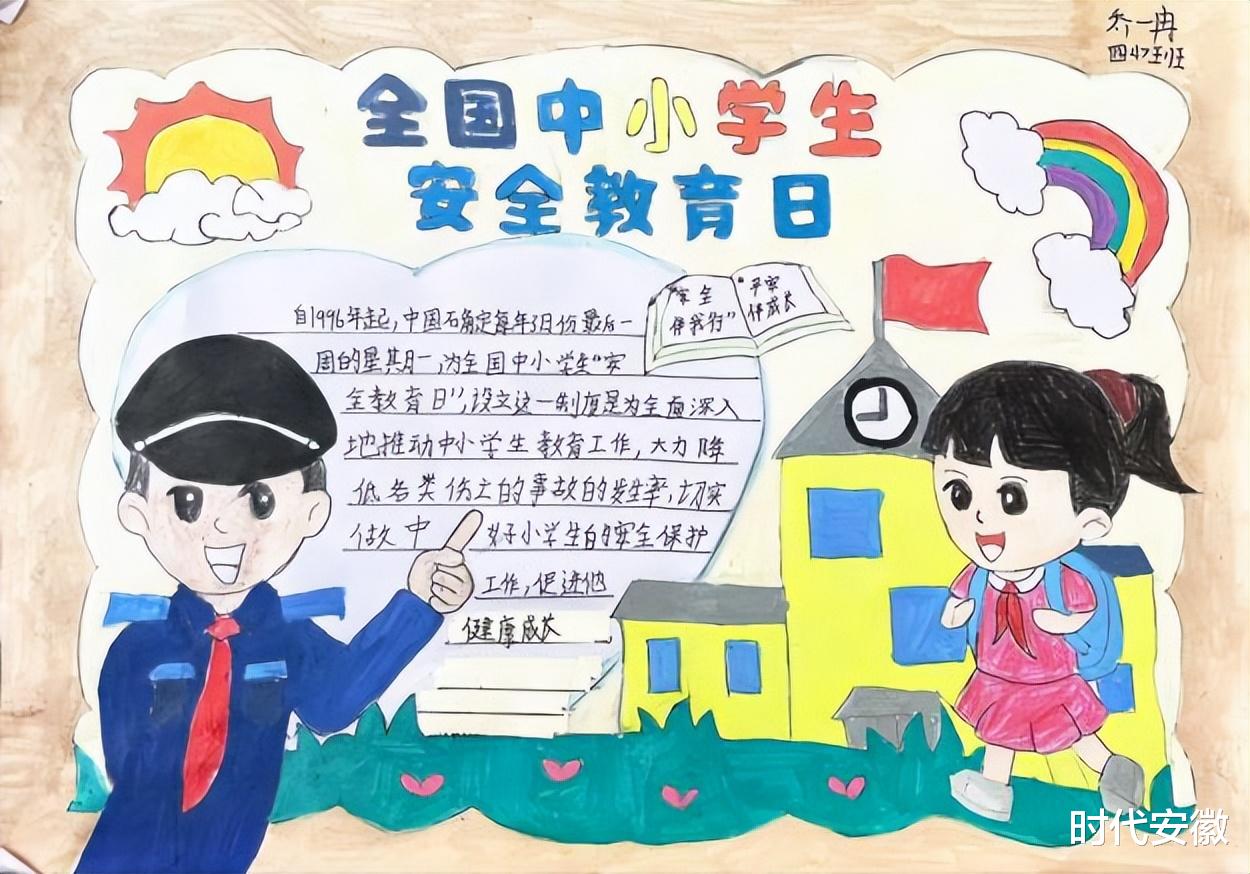 乔一冉
四4班
全国中小学生
安全教育日
自1996年起,中国确定每年3日份最后一
周的星期一,为全国中小学生"安
全教育日",设立这一制度是为全面深入
地推动中小学生教育工作,大力降
低各类伤亡的事故的发生率,切实
做 中 好小学生的安全保护
工作,促进他
健康成长
"安全
伴我行"
"平安
伴成长
时代安徽